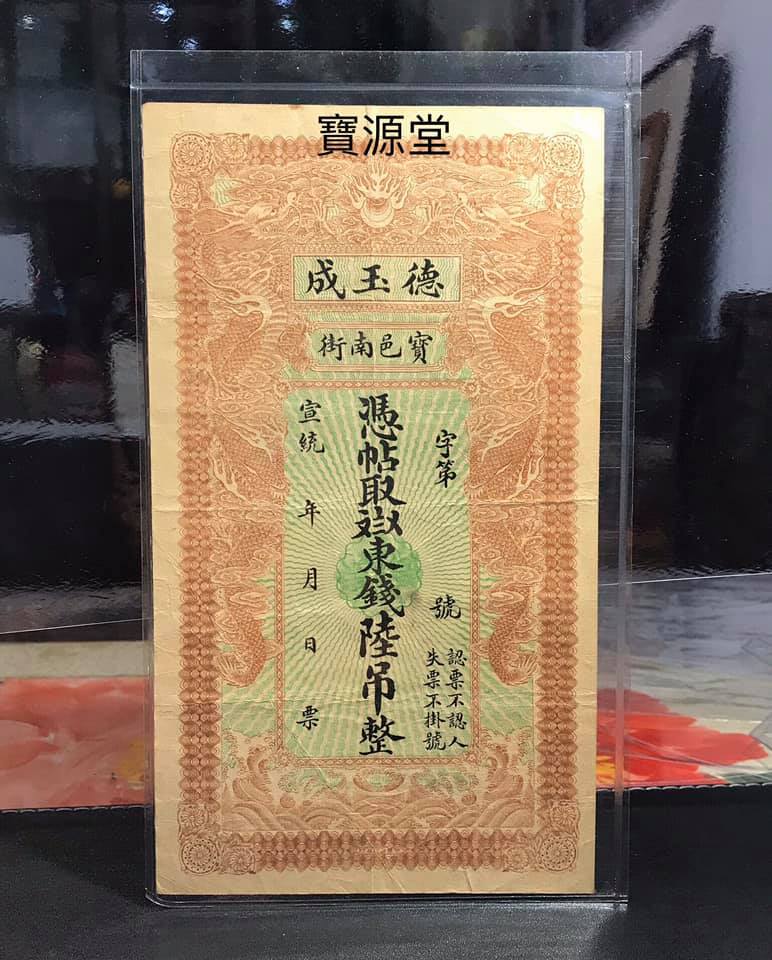 寶源堂
德玉成
寶邑南街
字第 號
認票不認人
失票不掛號
憑帖取東錢陸吊整
宣統 年 月 日 票